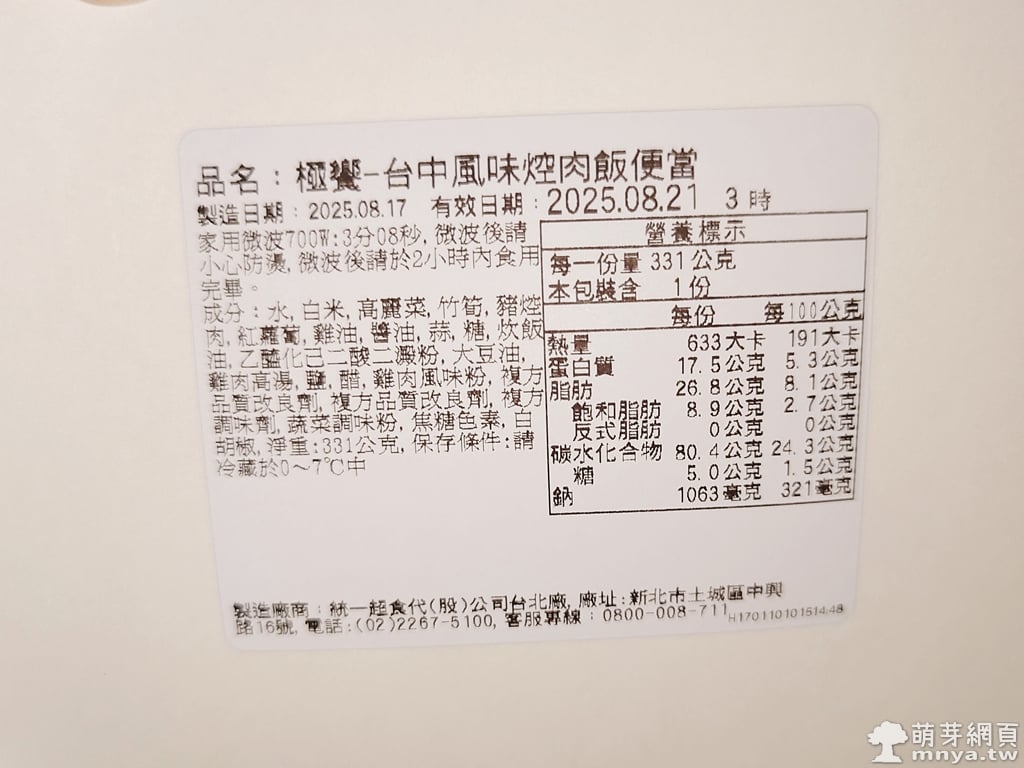 品名：極饗-台中風味焢肉飯便當
製造日期：2025.08.17 有效日期：2025.08.21 3時
家用微波700W:3分08秒,微波後請
小心防燙,微波後請於2小時內食用
完畢。
成分：水,白米,高麗菜,竹筍,豬焢
肉,紅蘿蔔,雞油,醬油,蒜,糖,炊飯
油,乙醯化己二酸二澱粉,大豆油,
雞肉高湯,鹽,醋,雞肉風味粉,複方
品質改良劑,複方品質改良劑,複方
調味劑,蔬菜調味粉,焦糖色素,白
胡椒,淨重:331公克,保存條件:請
冷藏於0～7℃中
營養標示
每一份量 331公克
本包裝含 1份
每份 每100公克
熱量 633大卡 191大卡
蛋白質 17.5公克 5.3公克
脂肪 26.8公克 8.1公克
飽和脂肪 8.9公克 2.7公克
反式脂肪 0公克 0公克
碳水化合物 80.4公克 24.3公克
糖 5.0公克 1.5公克
鈉 1063毫克 321毫克
製造廠商：統一超食代(股)公司台北廠,廠址:新北市土城區中興
路16號,電話:(02)2267-5100,客服專線：0800-008-711 H170110101514:48
萌芽網頁
mnya.tw